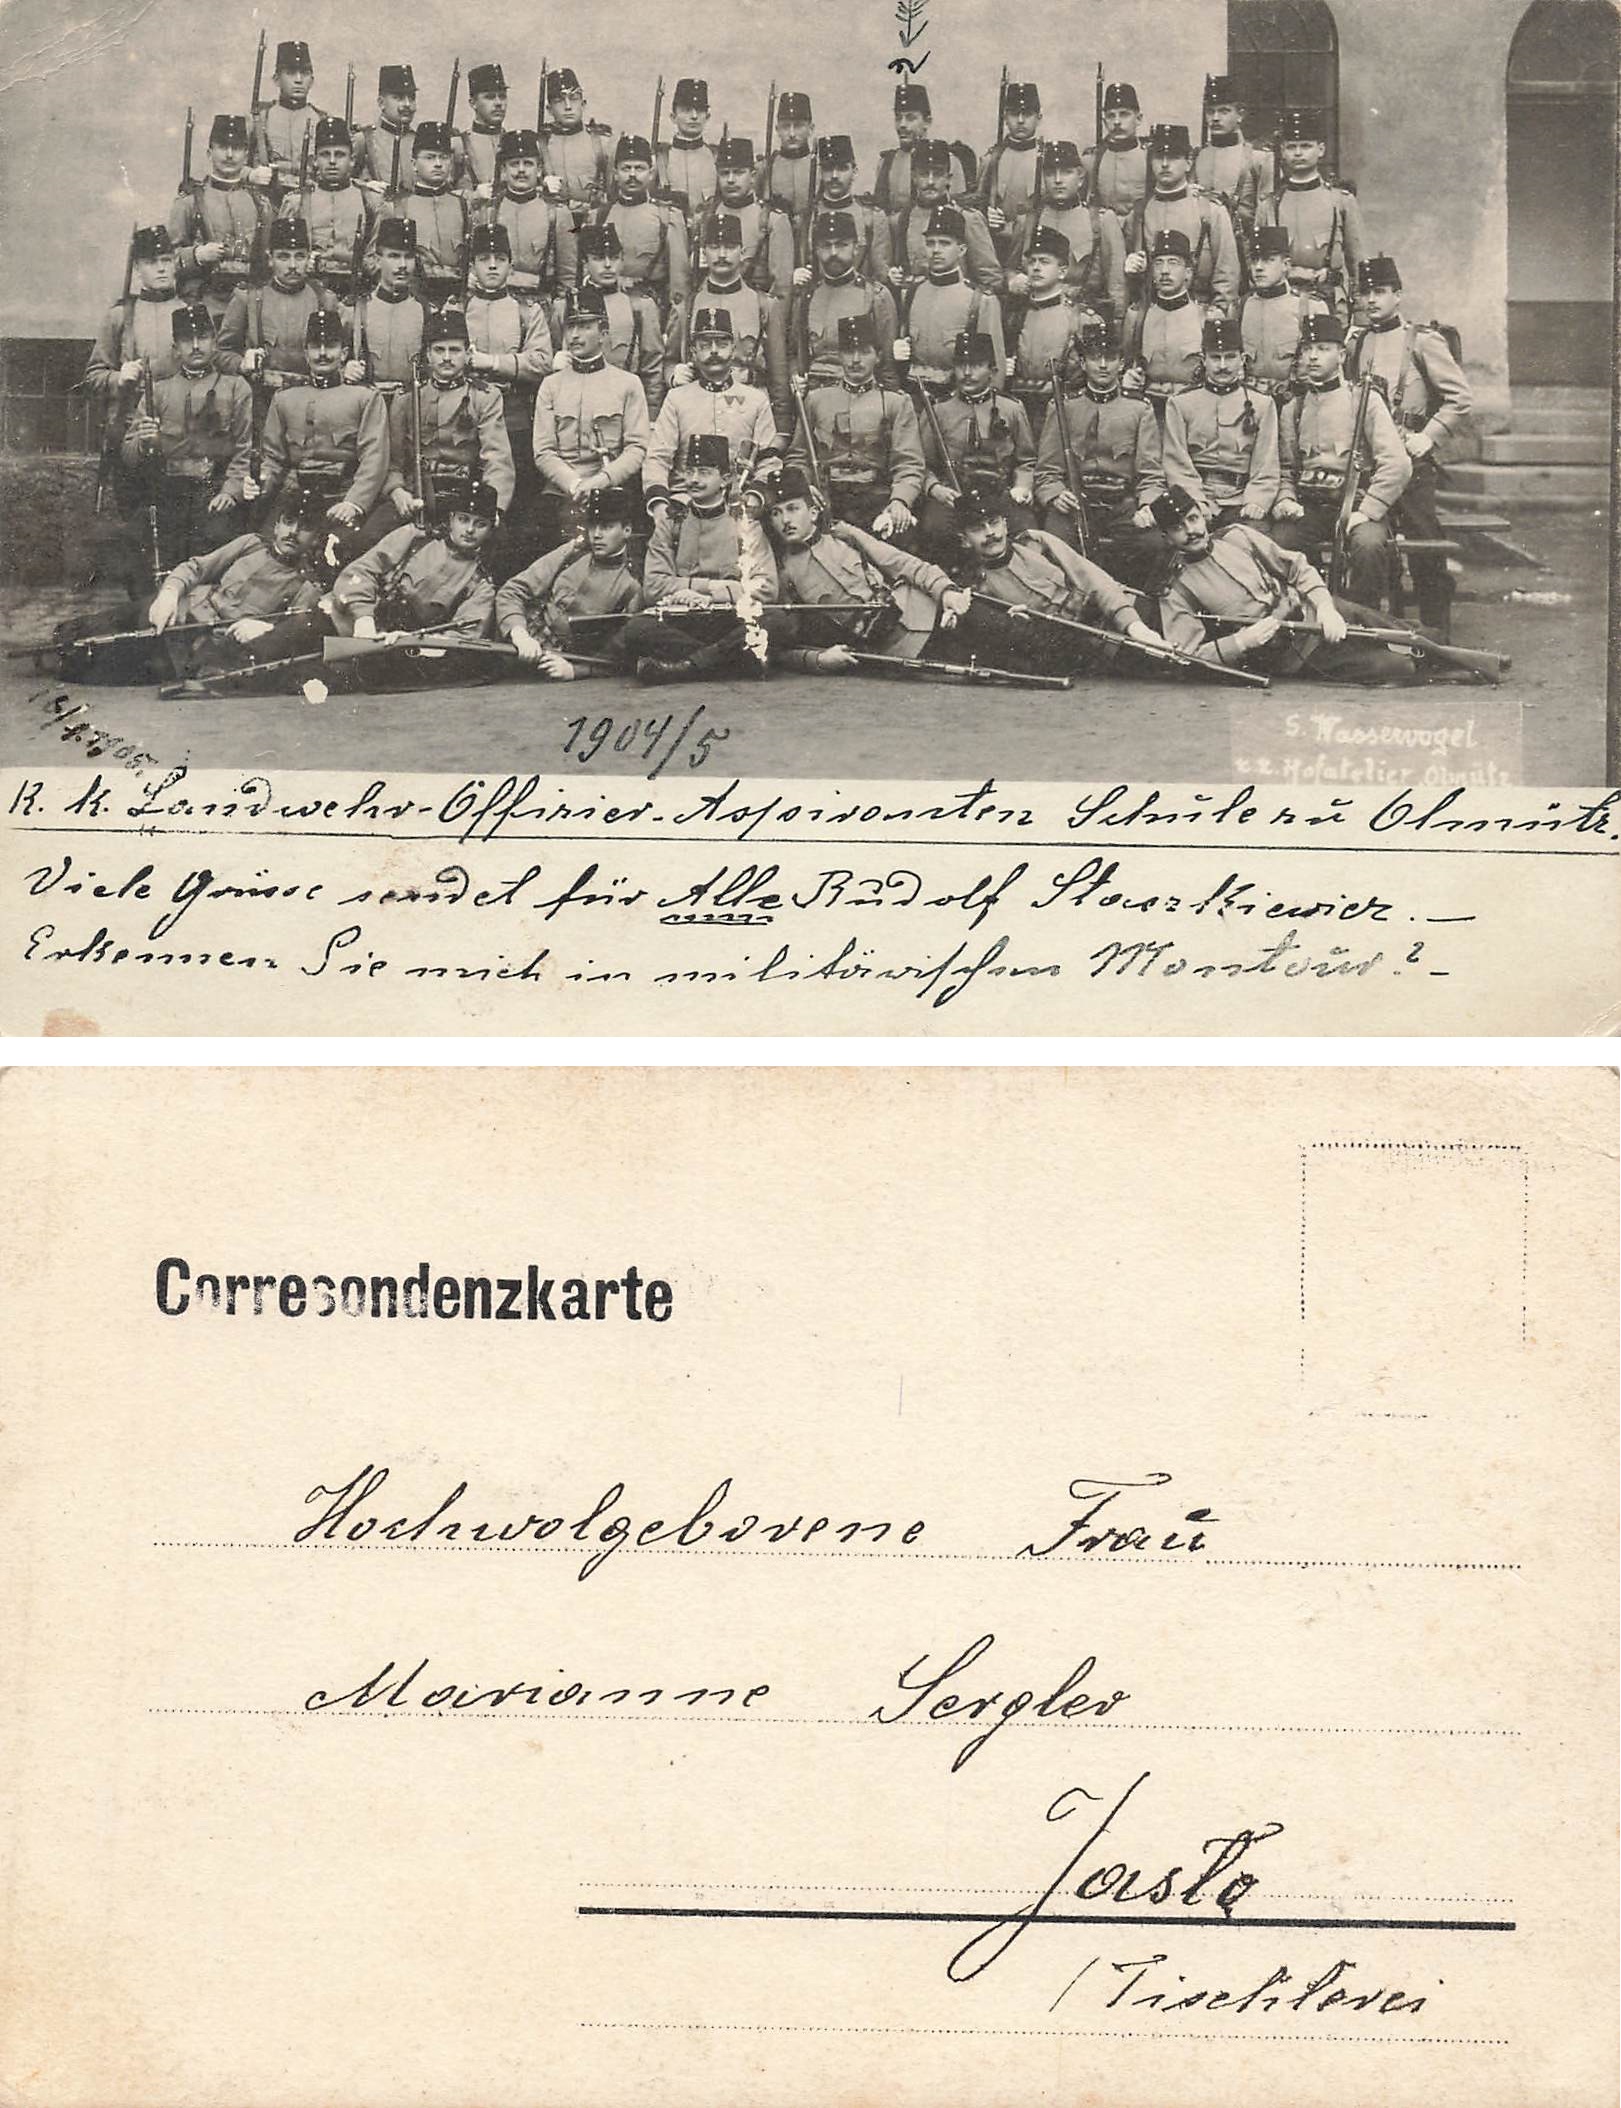 1904/5
S. Wasservogel
k.k. Hofatelier Olmütz
K. k. Landwehr-Offizier-Aspiranten Schule zu Olmütz.
Viele Grüsse sendet für Alle Rudolf
Erkennen Sie mich in militärischen Montour? -
Corresondenzkarte
Hochwolgeborene Frau
Marianne Sergler
Jasło
(Tischlerei